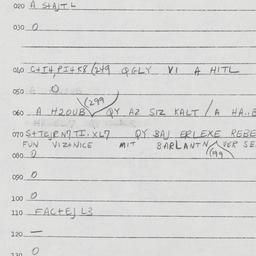 020 A S+AJT L
030 O
040 C+I4, PI4K8 /249 QGLY VI A HITL
050 O
(299
060 A H2OUB QY AZ SIZ KALT / A HA..B
070 S+TEJRN7TI.XL7 QY BAJ ERLEXE REBE
FUN VIZ4NICE MIT BARLANTN VER SE
080 O (199
090 O
100 O
110 FAC+EJ L3
120 —
130 O